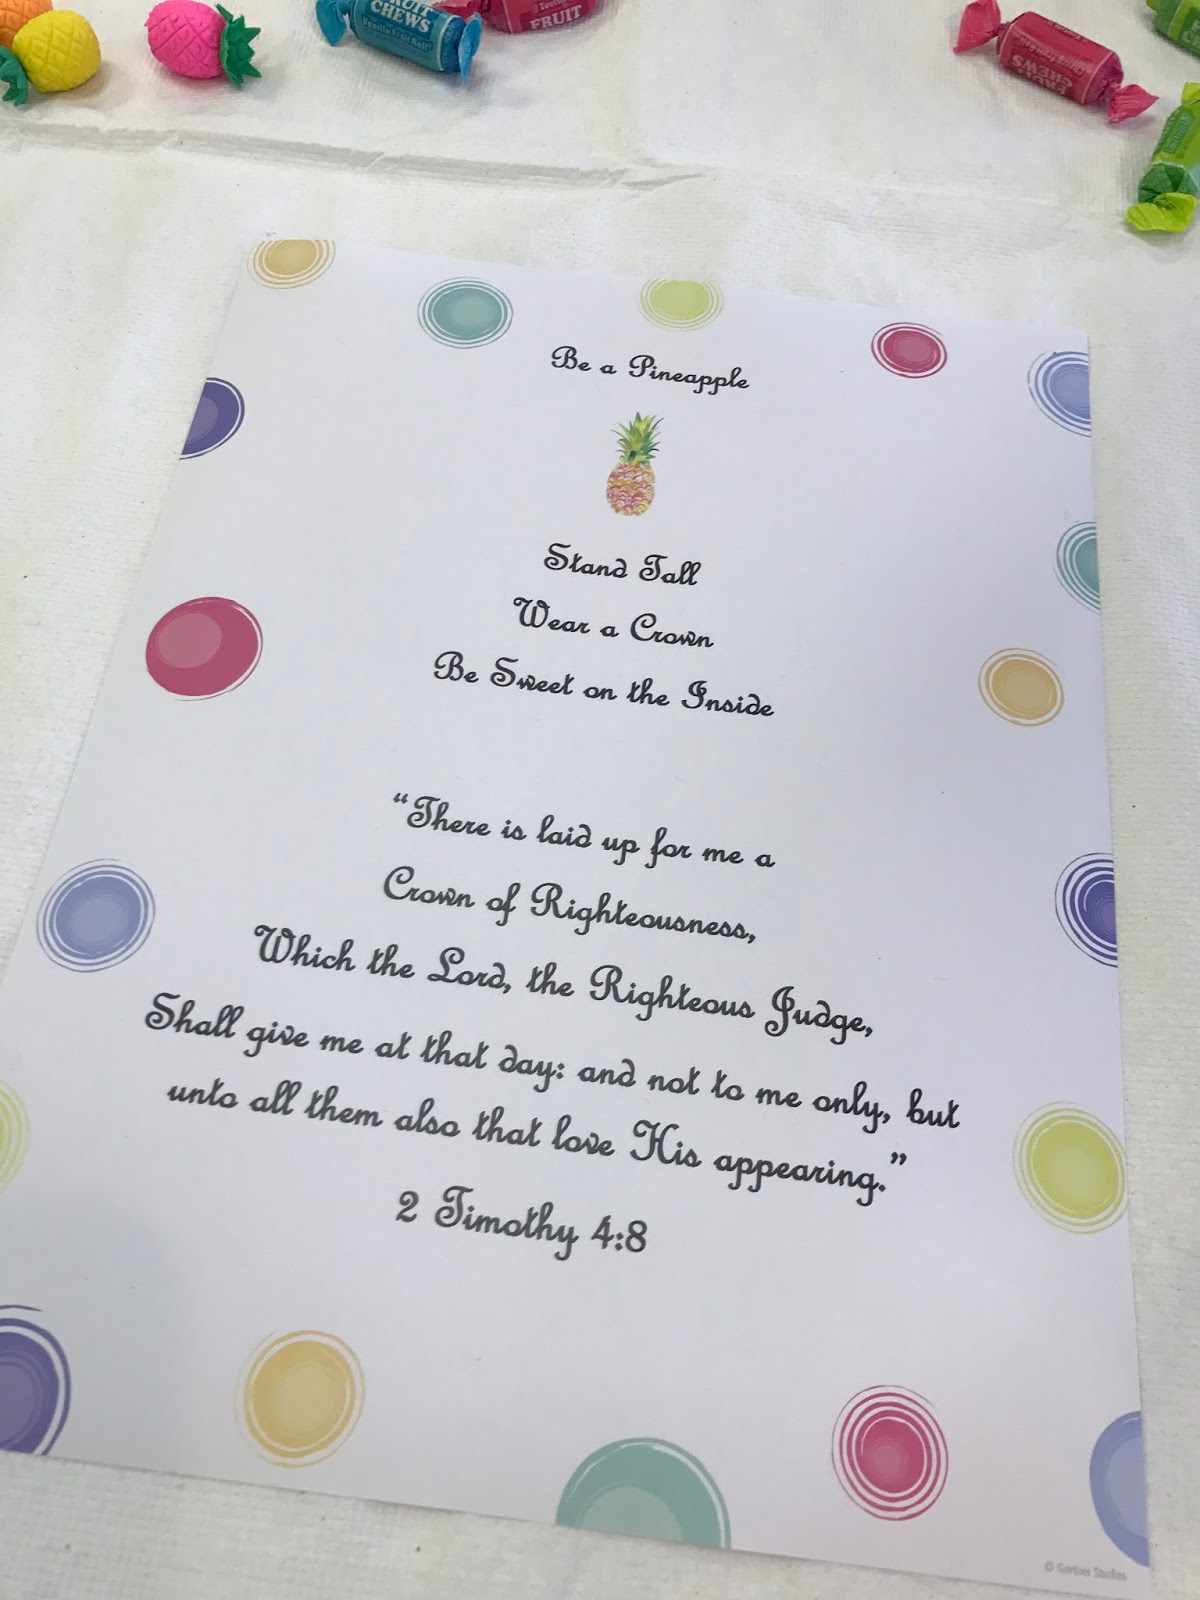 FRUIT
CHEWS
Vanilla Fruit Roll
Tootsie
FRUIT
FRUIT
CHEWS
Be a Pineapple
Stand Tall
Wear a Crown
Be Sweet on the Inside
“There is laid up for me a
Crown of Righteousness,
Which the Lord, the Righteous Judge,
Shall give me at that day: and not to me only, but
unto all them also that love His appearing.”
2 Timothy 4:8
© Gartner Studios